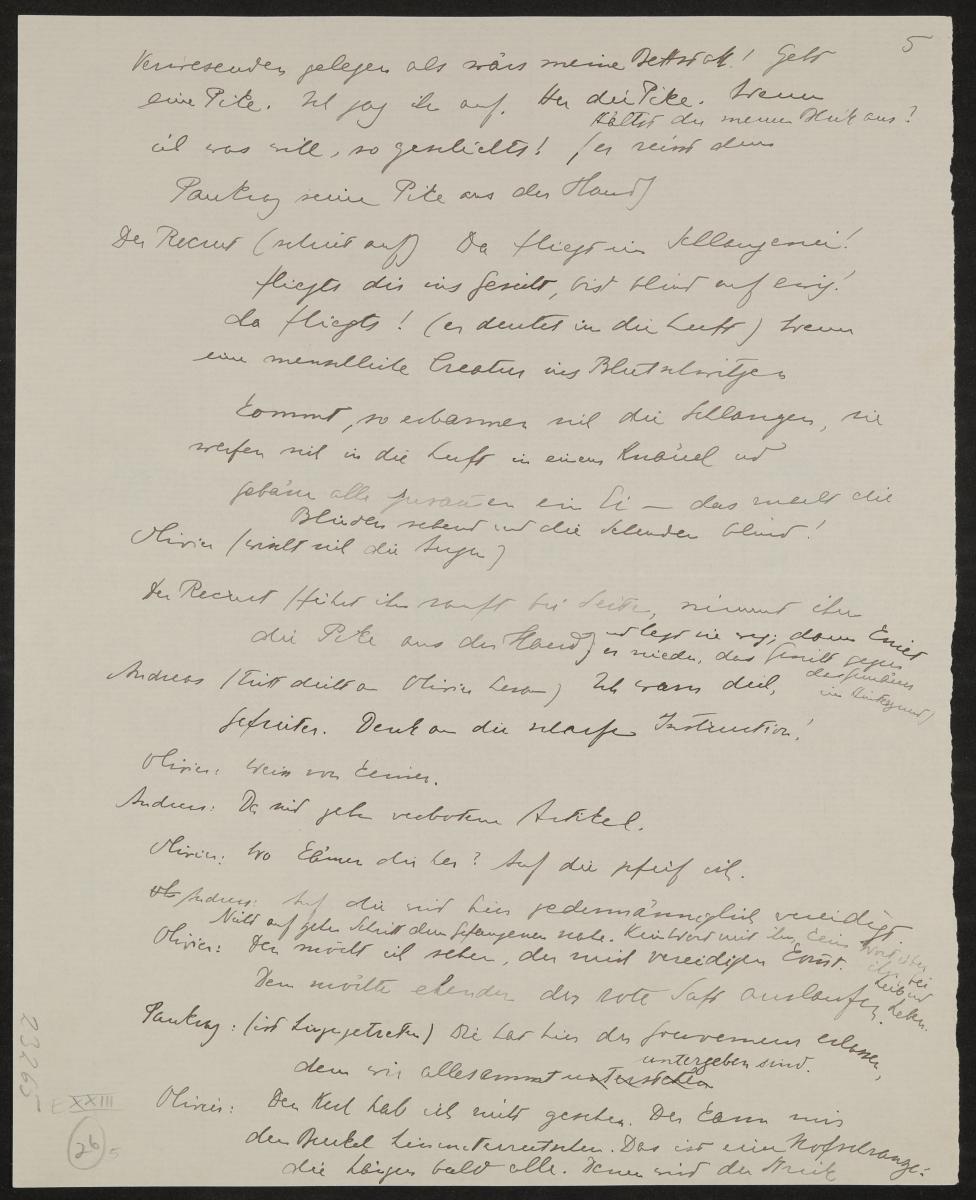 5
Verwesenden gelegen als wärs meine Bettstatt! Gebt
eine Pike. Ich jag ihn auf. Her die Pike. Wenn
Hältst du meinen Blick aus?
ich was will, so geschiehts! (er reisst dem
Pankraz seine Pike aus der Hand)
Der Recrut (schreit auf) Da fliegt ein Schlangenei!
fliegts dir ins Gesicht, bist blind auf ewig!
da fliegts! (er deutet in die Luft) Wenn
eine menschliche Creatur ins Blutschwitzen
kommt, so erbarmen sich die Schlangen, sie
werfen sich in die Luft in einem Knäuel und
gebären alle zusammen ein Ei — das macht die
Blinden sehend und die Sehenden blind!
Olivier (wischt sich die Augen)
Der Recrut (führt ihn sanft bei Seite, nimmt ihm
die Pike aus der Hand) und legt sie weg; dann kniet
er nieder, das Gesicht gegen
den Gemäuer
im Hintergrund)
Andreas (tritt dicht an Olivier heran) Ich warn dich,
Gefreiter. Denk an die scharfe Instruction!
Olivier: Weiss von keiner.
Andreas: Da sind zehn verbotene Artikel.
Olivier: Wo kämen die her? Auf die pfeif ich.
Andreas: Auf die wird hier jedermänniglich vereidigt.
Nicht auf zehn Schritt dem Gefangenen nahe. Kein Wort mit ihm, kein Wort über
ihn bei
Leib und
Leben.
Olivier: Den möcht ich sehen, der mich vereidigen kömmt.
Dem möchte ehender der rote Saft auslaufen.
Pankraz: (ist hinzugetreten) Die hat hier der Gouverneur erlassen,
dem wir allesammt unterstehen
untergeben sind.
Olivier: Den Kerl hab ich nicht gesehen. Der kann mir
den Buckel hinunterrutschen. Das ist eine Hofschranze:
die hängen bald alle. Denen wird der Strick
23265
E XXIII
26
5